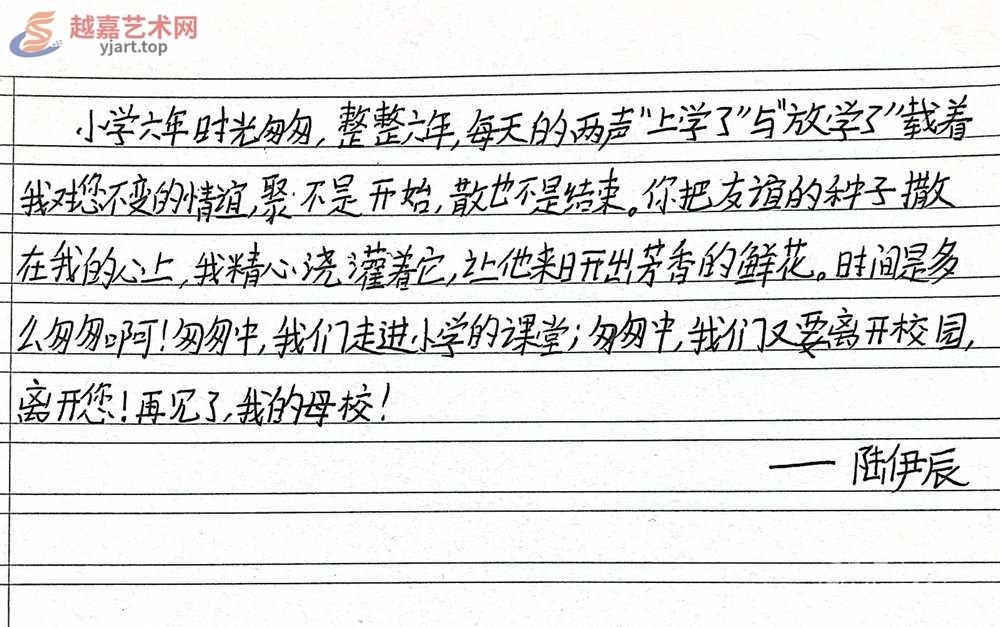 越嘉艺术网
yjart.top
小学六年时光匆匆，整整六年，每天的两声"上学了"与"放学了"载着
我对您不变的情谊，聚不是开始，散也不是结束。你把友谊的种子撒
在我的心上，我精心浇灌着它，让他来日开出芳香的鲜花。时间是多
么匆匆啊！匆匆中，我们走进小学的课堂；匆匆中，我们又要离开校园，
离开您！再见了，我的母校！
—— 陆伊辰